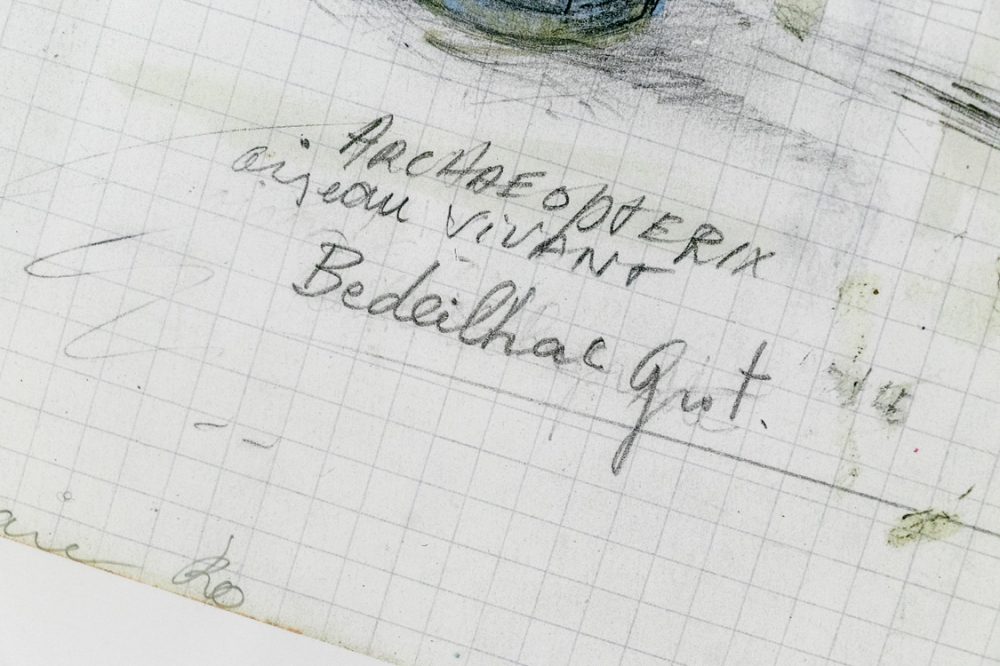 ARCHAEOPTERIX
oiseau VIVANT
Bedeilhac Grot.